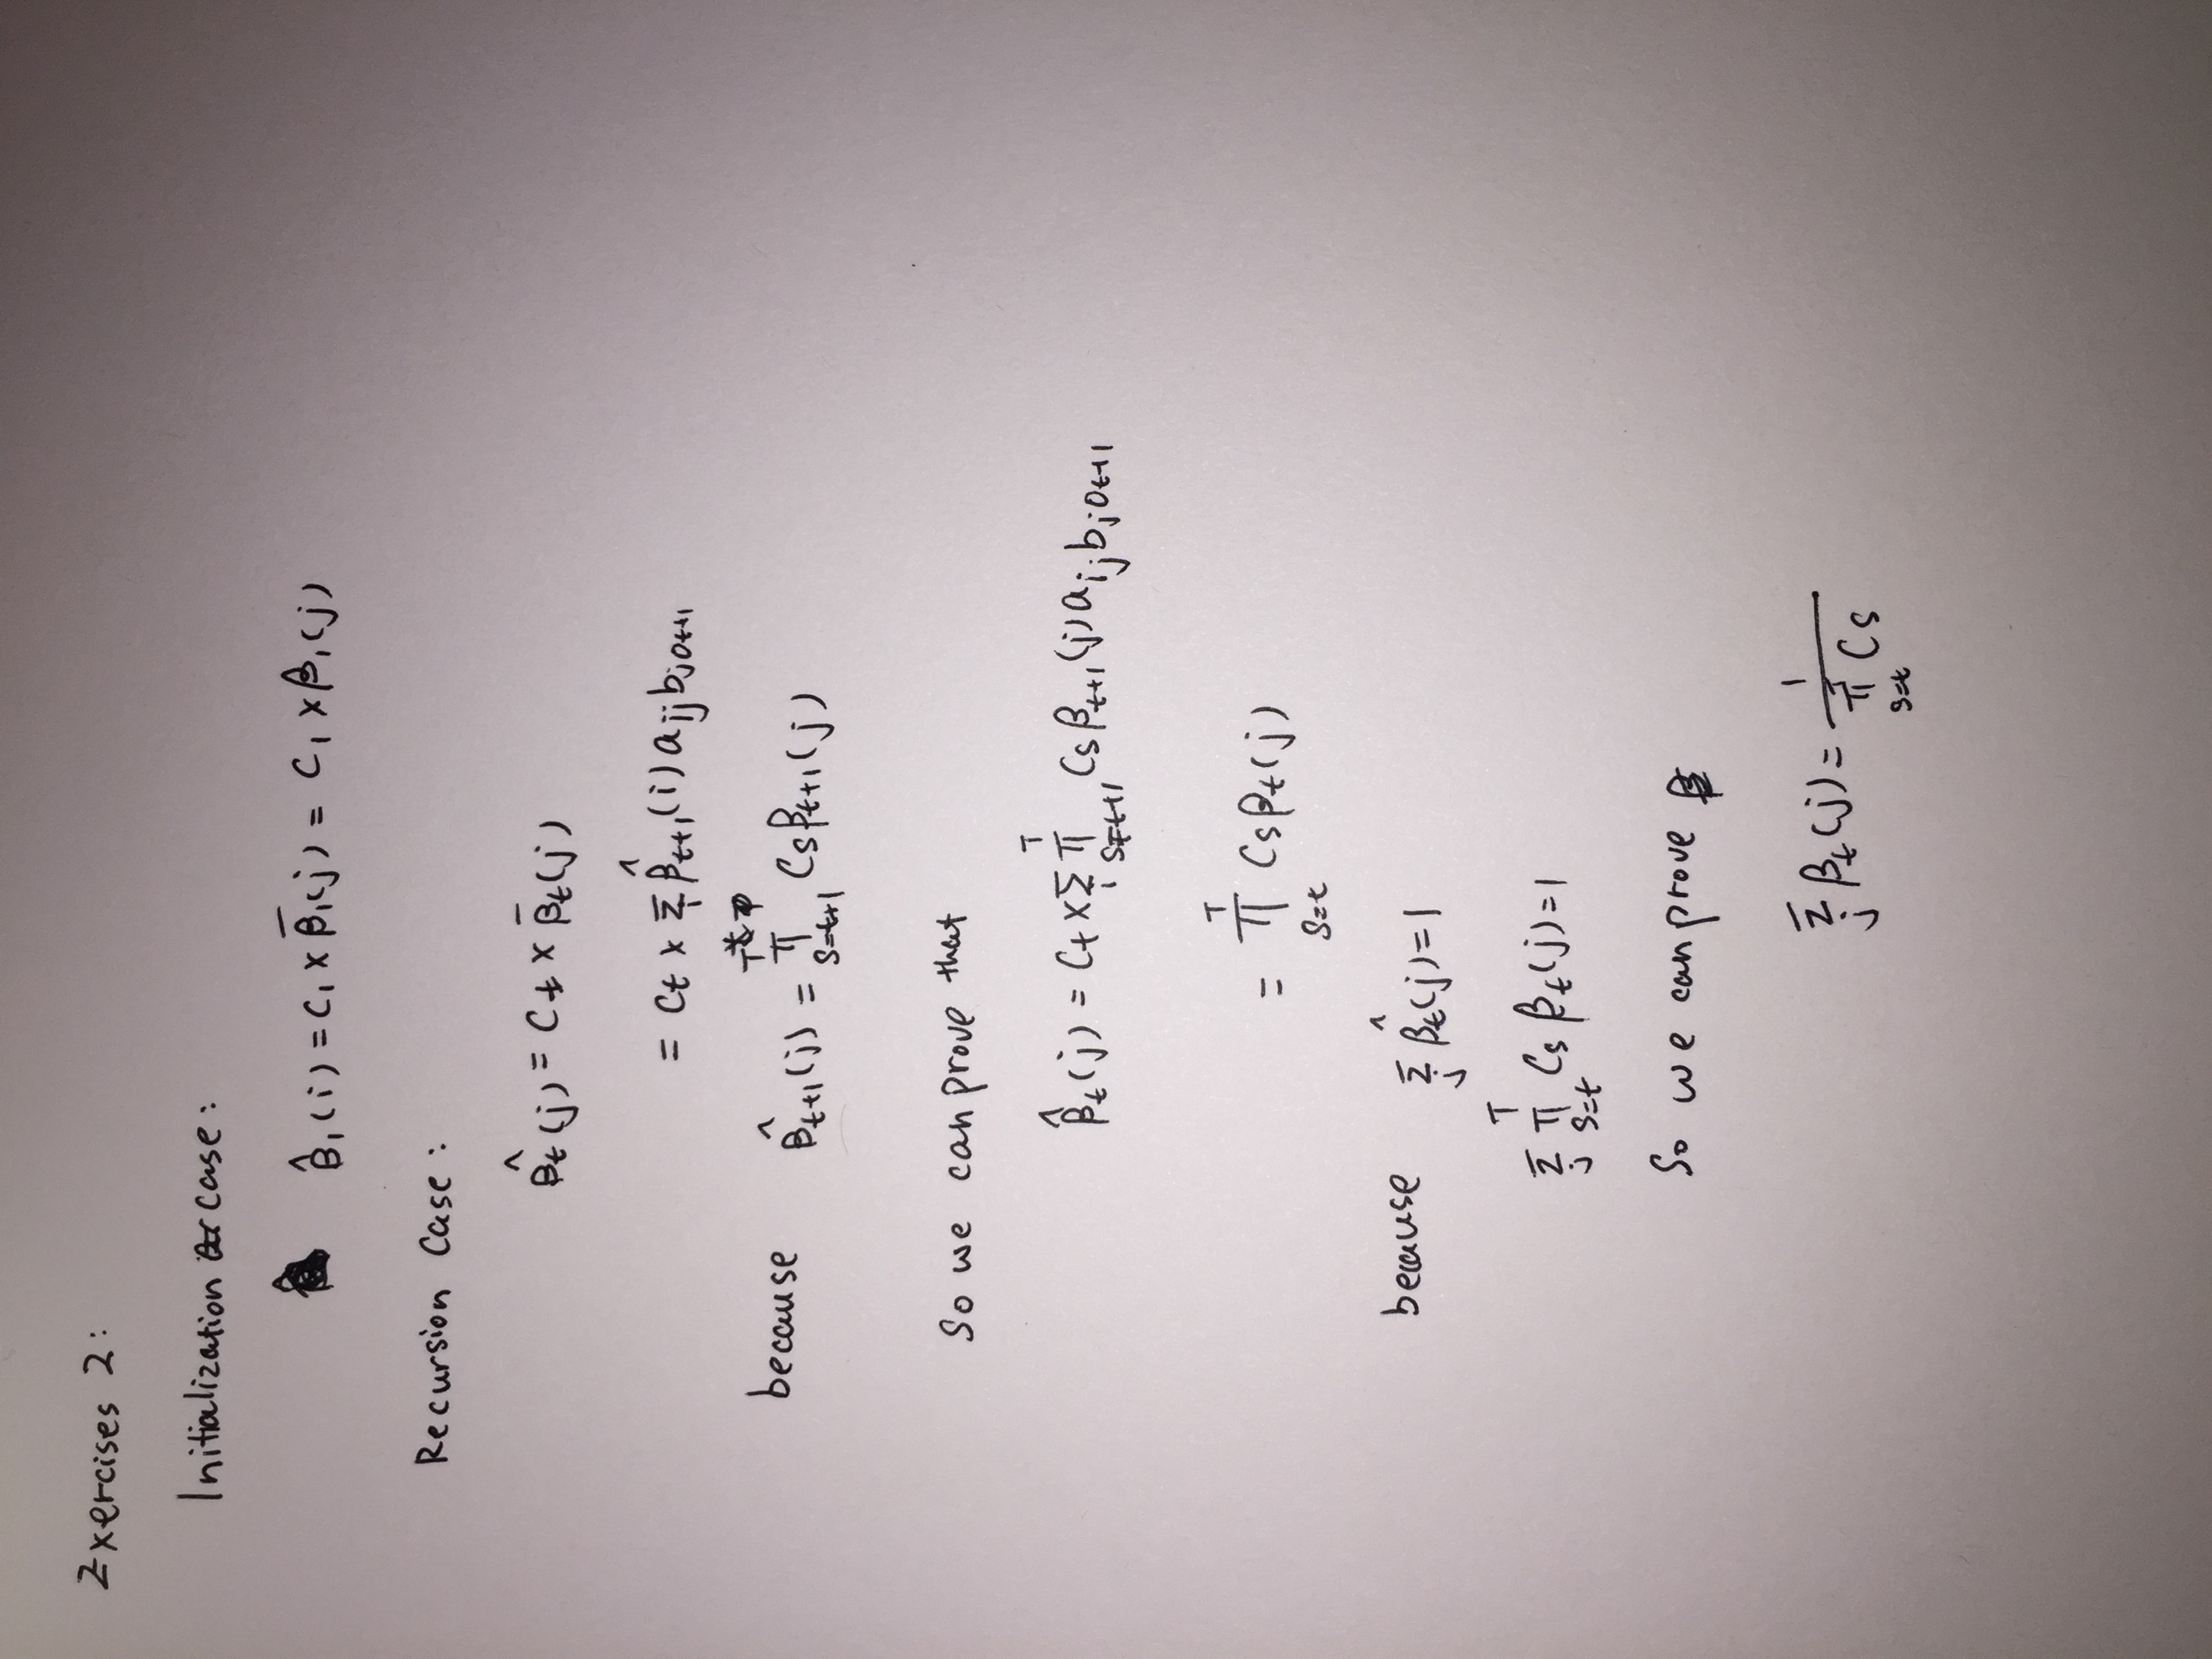 Exercises 2:
Initialization case:
β̂₁(i) = C₁ × β̄₁(j) = C₁ × β₁(j)
Recursion Case:
β̂ₜ(j) = Cₜ × β̄ₜ(j)
= Cₜ × Σᵢ β̂ₜ₊₁(i) aⱼⱼ bⱼₒₜ₊₁
because β̂ₜ₊₁(j) = ∏_{s=t+1}^{T} Cs βₜ₊₁(j)
So we can prove that
β̂ₜ(j) = Cₜ × Σᵢ ∏_{s=t+1}^{T} Cs βₜ₊₁(j) aᵢⱼ bⱼₒₜ₊₁
= ∏_{s=t}^{T} Cs βₜ(j)
because Σⱼ β̂ₜ(j) = 1
Σⱼ ∏_{s=t}^{T} Cs βₜ(j) = 1
So we can prove
Σⱼ βₜ(j) = 1 / ∏_{s=t} Cs